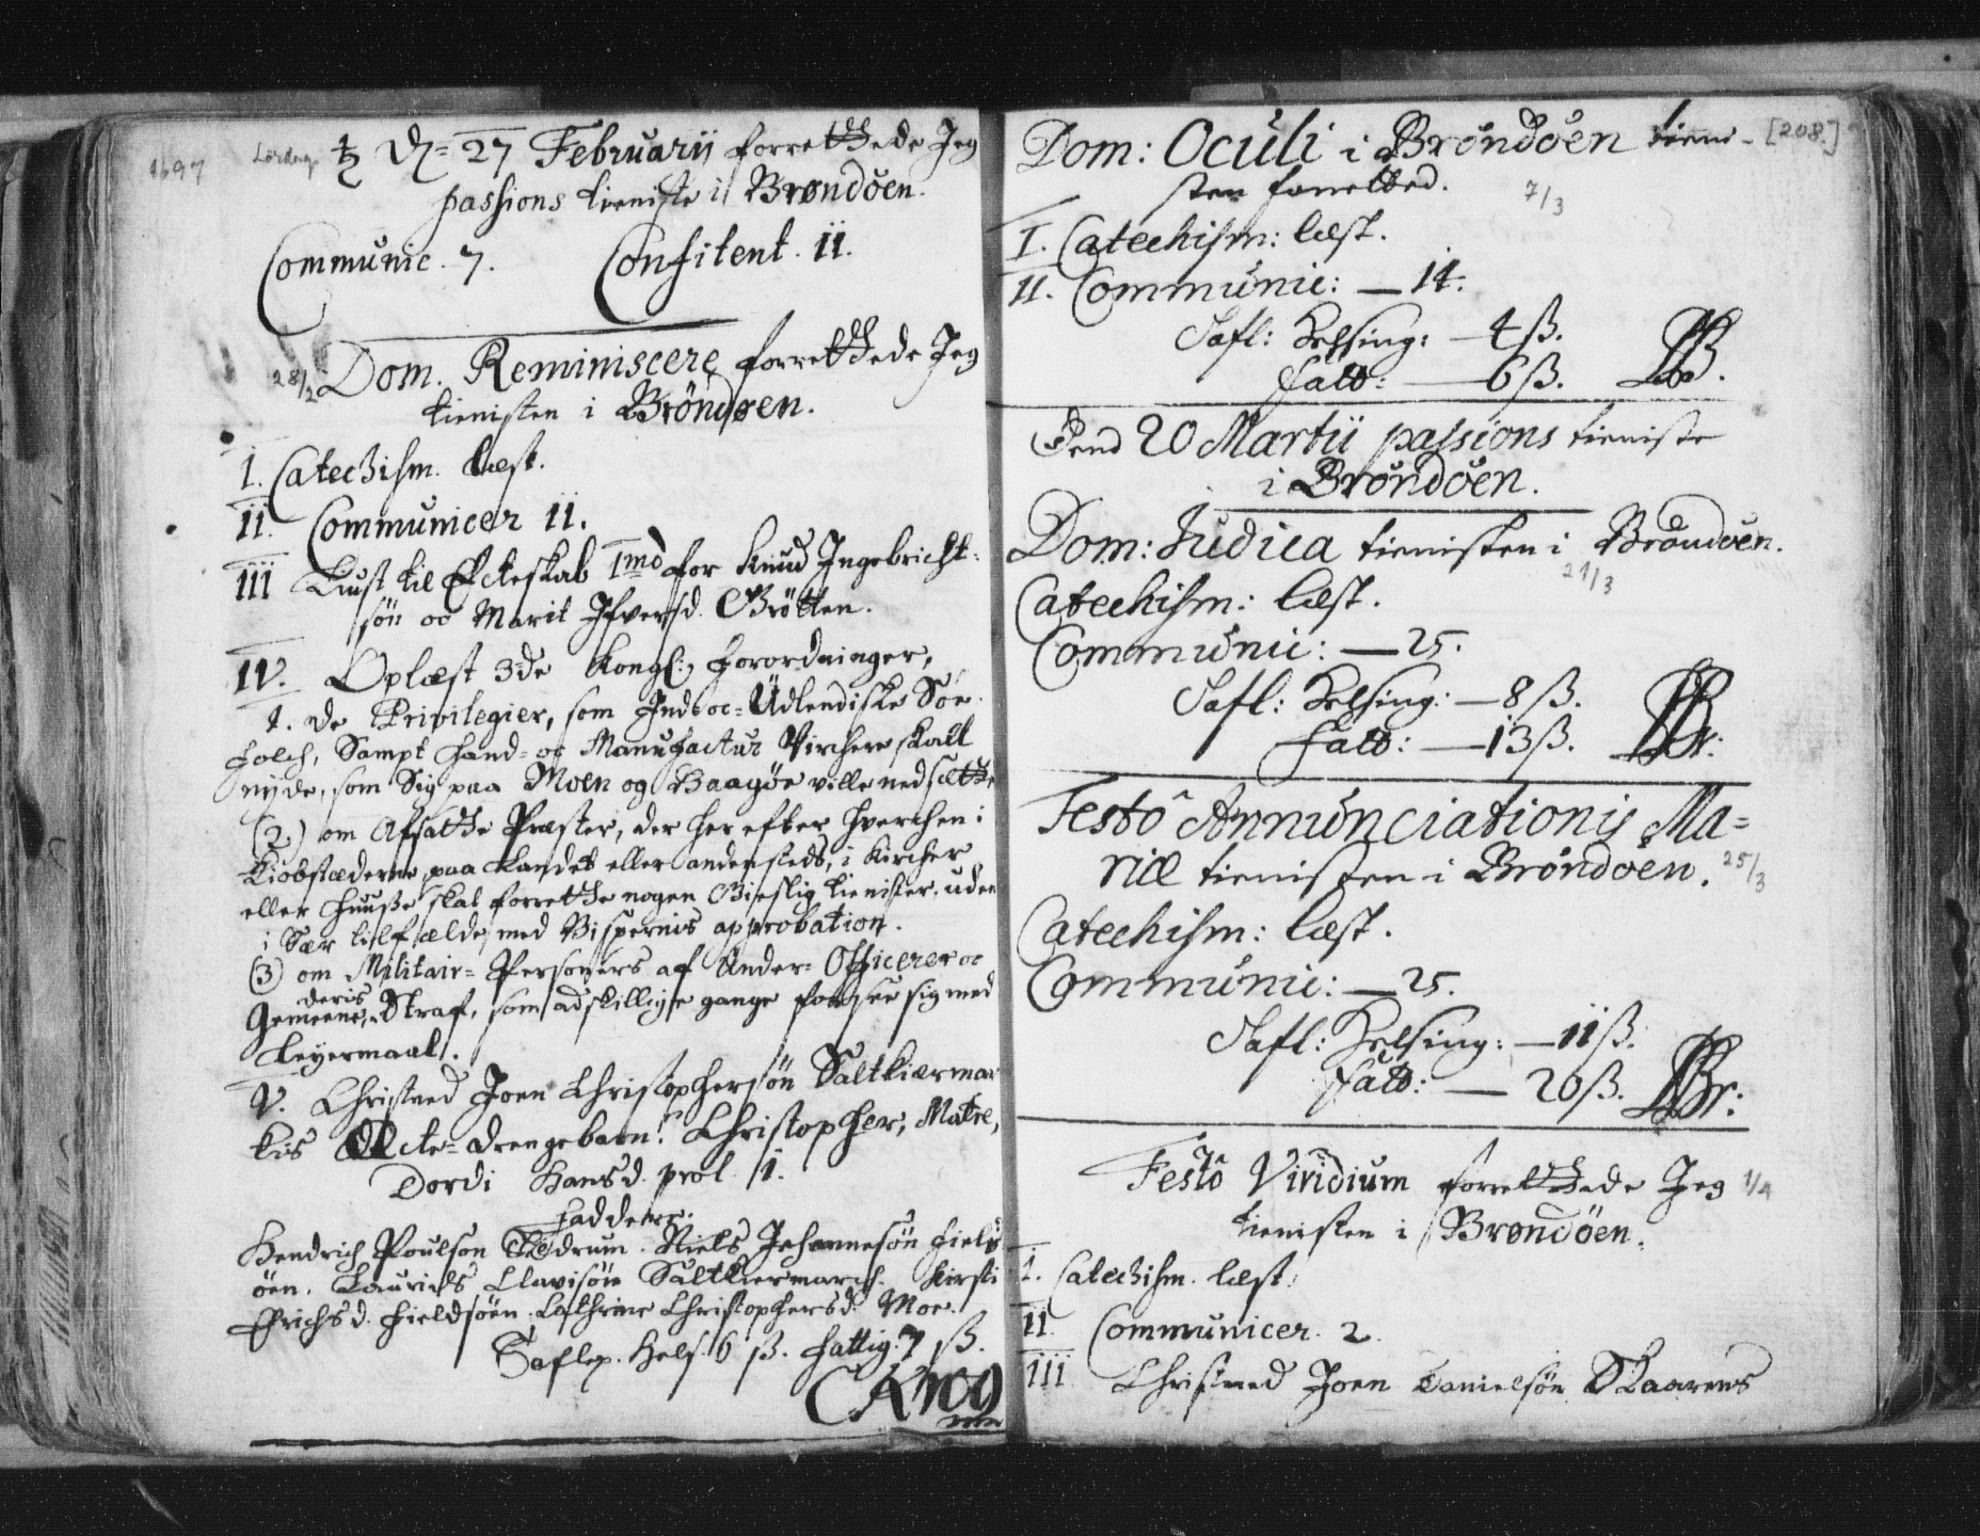 1697 Lördag. ♄ D. 27 Februarij forrettede Jeg
passions tieniste i Brøndöen.
Communic. 7. Confitent. 11.
28/2 Dom. Reminiscere forrettede Jeg
tienisten i Bröndøen.
I. Catechism. læst.
II. Communicer 11.
III Liust til Ecteskab 1mo for Knud Ingebricht-
sön oc Marit Ifversd. Grötten.
IV. Oplæst 3de Kongl: Forordninger,
1. de Privilegier, som Ind oc Udlendiske Söe-
folch, Sampt Hand- og Manufactur Virchere skall
nyde, som Sig paa Moen og Baagöe ville nedsætte
(2.) om Afsatte Præster, der her efter hverchen i
Kiobstæderne, paa Landet eller andensteds, i Kircher
eller Huuse skal forrette nogen Gieslig tienister, uden
i Sær tilfælde med Bispernis approbation.
(3) om Militair- Personers af Under- Officerer oc
deris
Gemeene, Straf, som adskillige gange forsee sig med
Leyermaal.
V. Christned Joen Christophersön Saltkiærmar
kis Ecte- drengebarn: Christopher, Matre,
Dordi Hansd. prol. 1.
Faddere:
Hendrich Poulson Tedrum. Niels Johannesön Fields
öen. Laurids Clavisön Saltkiermarch. Kirsti
Erichsd. Fieldsöen. Cathrine Christophersd. Moe.
Taflep. Hels. 6 ß. Fattig. 7 ß.
CKrog
Dom: Oculi i Bröndöen tieni- [208.]
sten forretted. 7/3
I. Catechism: læst.
II. Communic: — 14.
Tafl: Helsing: — 4 ß.
Fatt: — 6 ß.
Dend 20 Martii passions tieniste
i Bröndöen.
Dom: Judica tienisten i Bröndöen.
21/3
Catechism: læst.
Communic: — 25.
Tafl: Helsing: — 8 ß.
Fatt: — 13 ß.
Festô Annunciationis Ma=
riæ tienisten i Bröndöen. 25/3
Catechism: læst.
Communic: — 25.
Tafl: Helsing: — 11 ß.
Fatt: — 20 ß.
Festô Viridium forrettede Jeg 1/4
tienisten i Brøndöen.
I. Catechism. læst.
II. Communicer. 2.
III Christned Joen Danielsön Skaarens